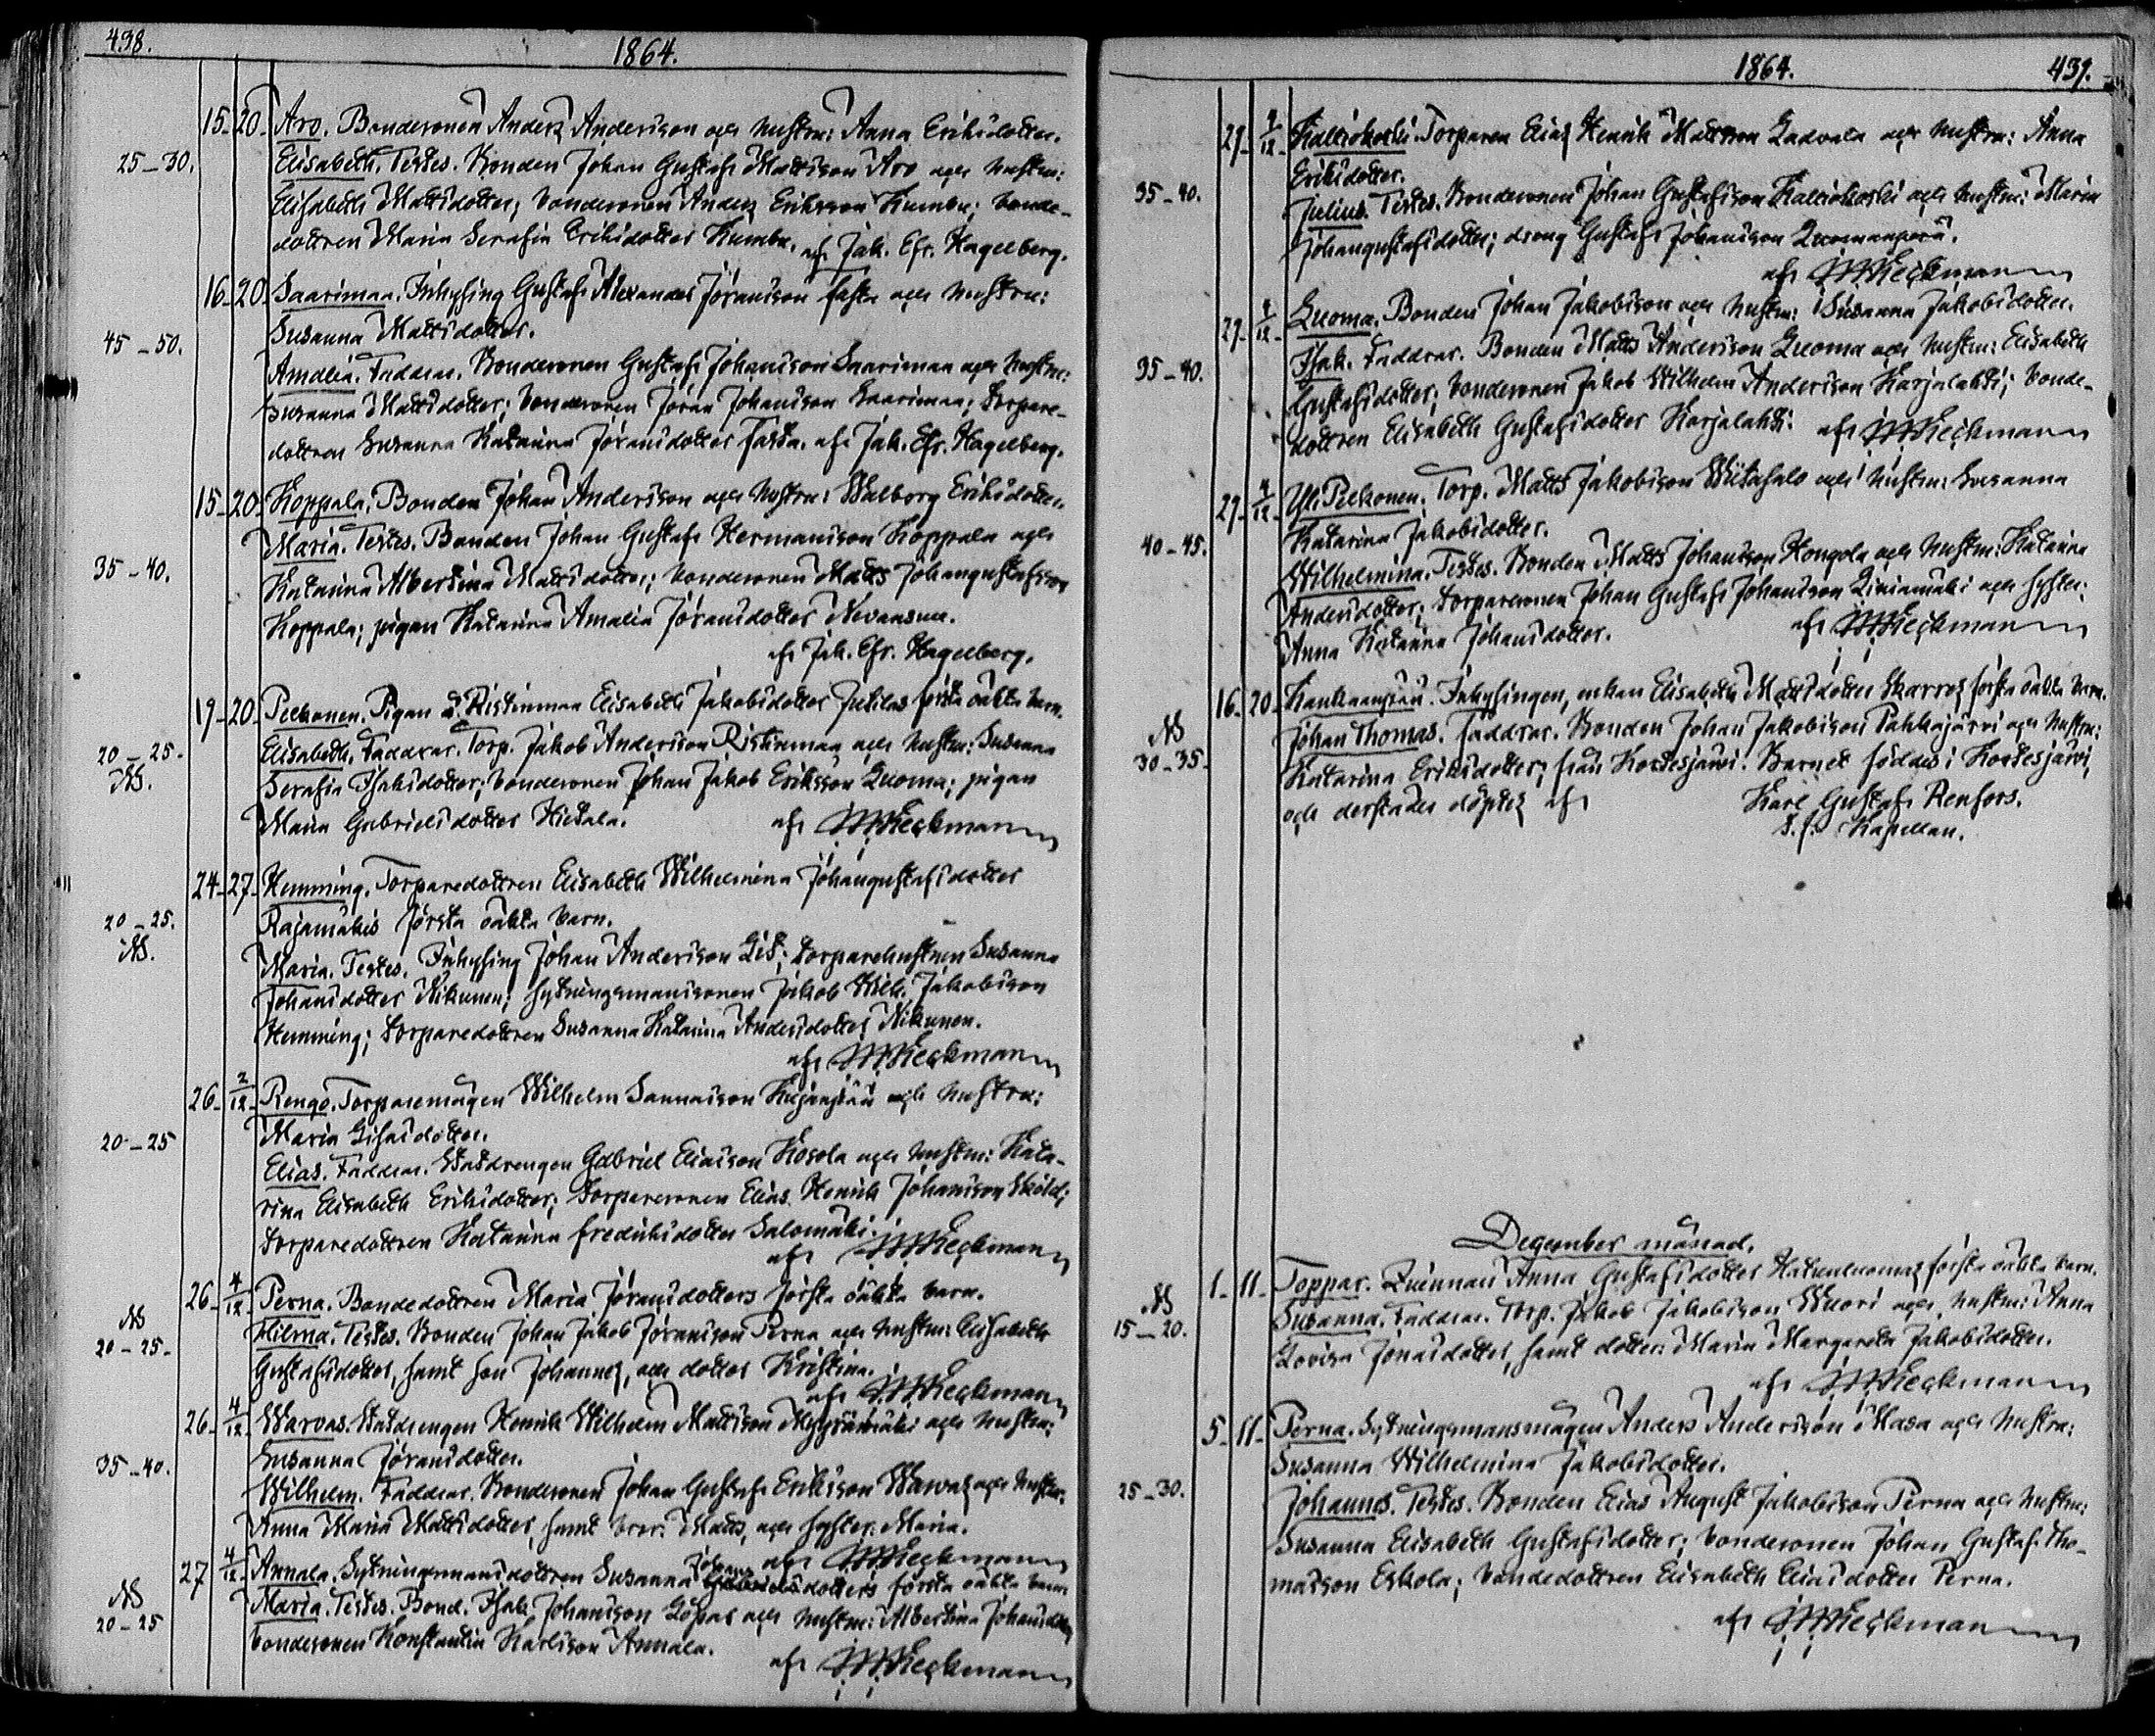 438.
1864.
15. 20. Aro. Bondesonen Anders Andersson och hustru: Anna Eriksdotter.
25–30. Elisabeth. Testes. Bonden Johan Gustaf Mattsson Aro och hustru:
Elisabeth Mattsdotter; bondesonen Anders Eriksson Kumbu; bonde-
dottren Maria Serafia Eriksdotter Kumbu. af Jak. Efr. Hagelberg.
16. 20. Saarimaa. Inhysing Gustaf Alexander Jöransson Fasta och hustru:
45–50. Susanna Mattsdotter.
Amalia. Faddrar. Bondesonen Gustaf Johansson Saarimaa och hustru:
Susanna Mattsdotter; bondesonen Jöran Johansson Saarimaa; torpare-
dottren Susanna Katarina Jöransdotter Fasta. af Jak. Efr. Hagelberg.
15. 20. Koppala. Bonden Johan Andersson och hustru: Walborg Eriksdotter.
Maria. Testes. Bonden Johan Gustaf Hermansson Koppala och
35–40. Katarina Albertina Mattsdotter; bondesonen Matts Johangustafsson
Koppala; pigan Katarina Amalia Jöransdotter Nevansuu.
af Jak. Efr. Hagelberg.
19. 20. Pelkonen. Pigan å Ristimaa Elisabeth Jakobsdotter Jutilas första oäkta barn.
20–25. Elisabeth. Faddrar. Torp. Jakob Andersson Ristimaa och hustru: Susanna
NB. Serafia Isaksdotter; bondesonen Johan Jakob Eriksson Luoma; pigan
Maria Gabrielsdotter Hietala. af Heckman
24. 27. Hemming. Torparedottren Elisabeth Wilhelmina Johangustafsdotter
20–25. Rajamäkis första oäkta barn.
NB. Maria. Testes. Inhysing Johan Andersson Lit; torparehustrun Susanna
Johansdotter Nikunen; sytningsmanssonen Jakob Wilh. Jakobsson
Hemming; torparedottren Susanna Katarina Andersdotter Nikunen.
af Heckman
26. 2/12. Rengo. Torparemågen Wilhelm Sannasson Kujanpää och hustru:
20–25 Maria
Elias. Faddrar. Statdrengen Gabriel Eliasson Kosola och hustru: Kata-
rina Elisabeth Eriksdotter; torparesonen Elias Henrik Johansson Sköld;
torparedottren Katarina Fredriksdotter Salomäki.
af Heckman
26. 4/12. Perna. Bondedottren Maria Jöransdotters första oäkta barn.
NB Hilma. Testes. Bonden Johan Jakob Jöransson Perna och hustru: Elisabeth
20–25. Gustafsdotter, samt son Johannes, och dotter Kristina.
af Heckman
26. 4/12. Warvas. Statdrengen Henrik Wilhelm Mattsson Myyrämäki och hustru:
35–40. Susanna Jöransdotter.
Wilhelm. Faddrar. Bondesonen Johan Gustaf Eriksson Warvas och hustru:
Anna Maria Mattsdotter, samt bror: Matts, och syster: Maria.
af Heckman
27 4/12. Annala. Sytningsmansdottren Susanna Johans dotters första oäkta barn
NB Maria. Testes. Bond. Isak Johansson Löpas och hustru: Albertina Johansdotter
20–25 bondesonen Konstantin Karlsson Annala.
af Heckman
1864. 439.
27. 4/12. Kalliokoski. Torparen Elias Henrik Mattsson Ladvala och hustru: Anna
35–40. Eriksdotter.
Julius. Testes. Bondesonen Johan Gustafsson Kalliokoski och hustru: Maria
Johangustafsdotter; dreng Gustaf Johansson Luomanperä.
af Heckman
27. 4/12. Luoma. Bonden Johan Jakobsson och hustru: Susanna Jakobsdotter.
35–40. Isak. Faddrar. Bonden Matts Andersson Luoma och hustru: Elisabeth
Gustafsdotter; bondesonen Jakob Wilhelm Andersson Karjalahti; bonde-
dottren Elisabeth Gustafsdotter Karjalahti. af Heckman
27. 4/12. Yli Pelkonen. Torp. Matts Jakobsson Wiitasalo och hustru: Susanna
40–45. Katarina Jakobsdotter.
Wilhelmina. Testes. Bonden Matts Johansson Kongola och hustru: Katarina
Andersdotter; torparesonen Johan Gustaf Johansson Liviamäki och syster:
Anna Katarina Johansdotter. af Heckman
16. 20. Kankaanpää. Inhysingen, enkan Elisabeth Mattsdotter Skarres första oäkta barn.
NB Johan Thomas. Faddrar. Bonden Johan Jakobsson Pahkajärvi och hustru:
30–35. Katarina Eriksdotter; från Kortesjärvi. Barnet föddes i Kortesjärvi,
och derstädes döptes af Karl Gustaf Renfors.
t. f. Kapellan.
December månad.
1. 11. Toppar. Quinnan Anna Gustafsdotter Hakenluomas första oäkta barn.
NB Susanna. Faddrar. Torp. Jakob Jakobsson Wuori och hustru: Anna
15–20. Lovisa Jonasdotter, samt dotter: Maria Margareta Jakobsdotter.
af Heckman
5. 11. Perna. Sytningsmansmågen Anders Andersson Masa och hustru:
Susanna Wilhelmina Jakobsdotter.
25–30. Johannes. Testes. Bonden Elias August Jakobsson Perna och hustru:
Susanna Elisabeth Gustafsdotter; bondesonen Johan Gustaf Tho-
masson Eskola; bondedottren Elisabeth Eliasdotter Perna.
af Heckman